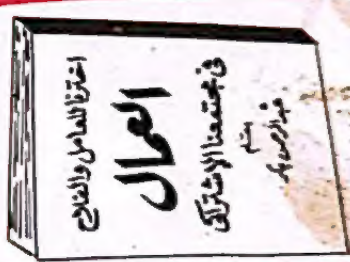 اخترنا للعامل والفلاح
العمال
في مجتمعنا الاشتراكي
بقلم
عبد الرحمن